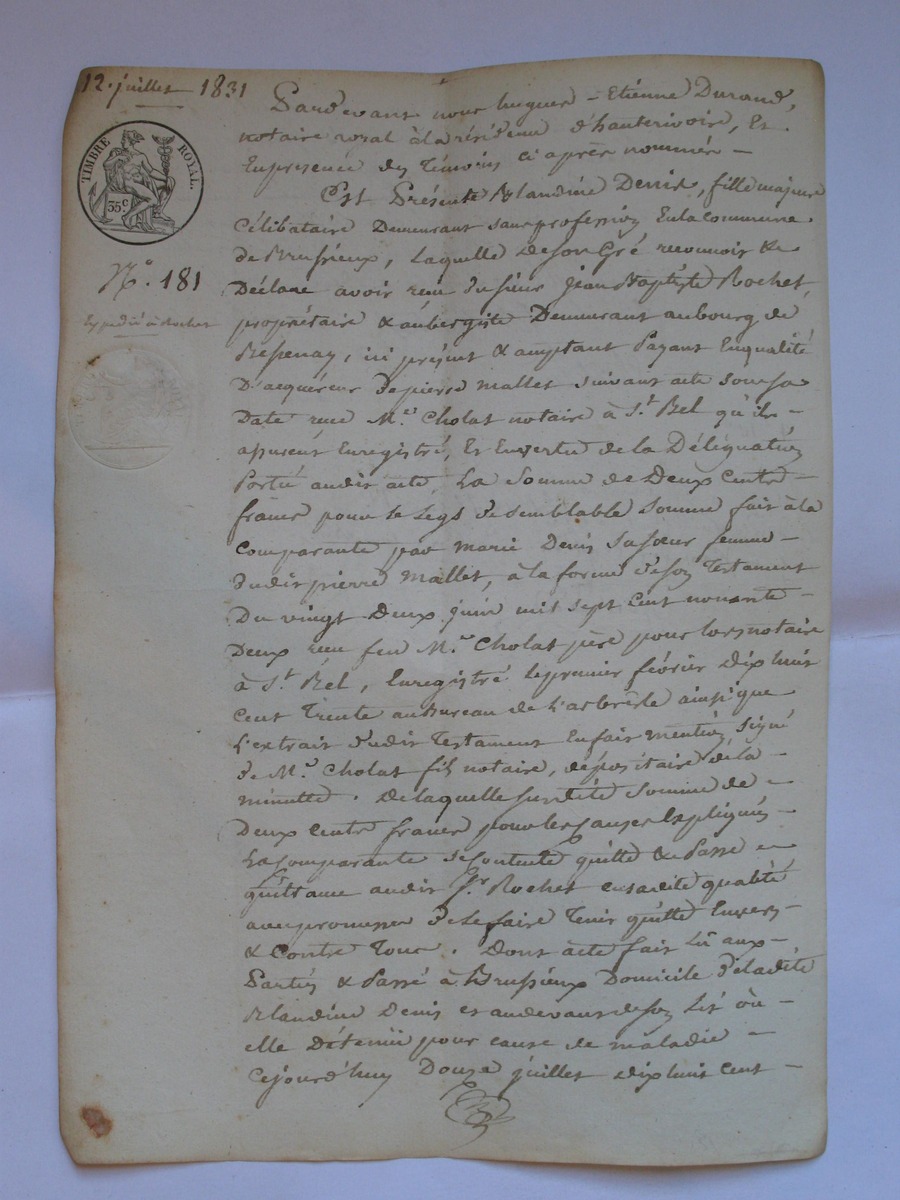 12. juillet 1831
TIMBRE ROYAL.
35 c
N.o 181
Expédié à Rochet
Pardevant nous hugues - Etiénne Durand,
notaire royal à la résidence d'hauterivoire, Et
En présence des Témoins ci après nommés -
Est Présente Blandine Denis, fille majeure
Célibataire Demeurant sans profession En la commune
de Brussieux, Laquelle de son Gré reconnoit &
Déclare avoir reçu du sieur Jean Baptiste Rochet,
propriétaire & aubergiste Demeurant au bourg de
Bessenay, ici présent & acceptant Payant En qualité
D'acquéreur de pierre Mallet suivant acte sous sa
Date reçu M.e Cholat notaire à S.t Bel qu'ils -
assurent Enregistré, Et En vertu de la Délégation
Porteé audit acte, La Somme de Deux Cents
francs pour le Legs de semblable somme fait à la
Comparante par Marie Denis sa sœur femme -
dudit pierre Mallet, à la forme de son Testament
Du vingt Deux juin mil sept cent nonante -
Deux reçu feu M.e Cholat père pour lors notaire
à S.t Bel, Enregistré le premier février dix huit
Cent Trente au Bureau de L'arbrêsle ainsi que
L'extrait dudit Testament En fait mention, signé
de M.e Cholat fils notaire, dépositaire de la -
minutte. De laquelle susdite Somme de -
Deux Cents francs pour les causes Expliquées -
La Comparante se Contente quitte & Passe -
quittance audit S.r Rochet en sa dite qualité
avec promesse de Le faire Tenir quitte Envers
& Contre Tous. Dont acte fait Lû aux -
Parties & Passé à Brussieux Domicile de ladite
Blandine Denis et au devant de son Lit où -
elle Détenüe pour cause de maladie -
Cejourd'huy Douze juillet dix huit cent -